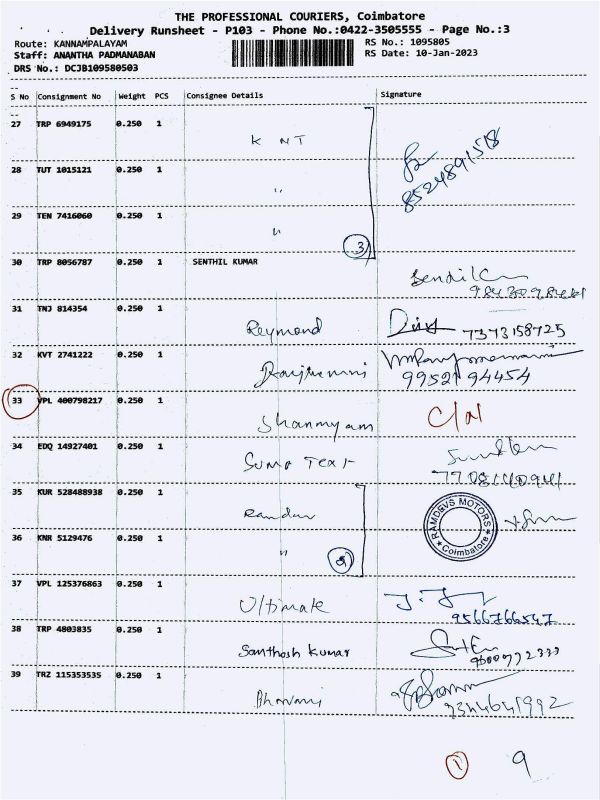 THE PROFESSIONAL COURIERS, Coimbatore
Delivery Runsheet - P103 - Phone No.:0422-3505555 - Page No.:3
Route: KANNAMPALAYAM
Staff: ANANTHA PADMANABAN
DRS No.: DCJB109580503
RS No.: 1095805
RS Date: 10-Jan-2023
S No Consignment No Weight PCS Consignee Details Signature
27 TRP 6949175 0.250 1
K NT
8524891518
28 TUT 1015121 0.250 1
"
29 TEN 7416060 0.250 1
"
3
30 TRP 8056787 0.250 1 SENTHIL KUMAR
31 TNJ 814354 0.250 1
Reymond 7373158725
32 KVT 2741222 0.250 1
99521 94454
33 VPL 400798217 0.250 1
Shanmyam
34 EDQ 14927401 0.250 1
Sump Text
7708140941
35 KUR 528488938 0.250 1
RAMDEVS MOTORS
* Coimbatore *
36 KNR 5129476 0.250 1
"
37 VPL 125376863 0.250 1
Ultimate 9566766547
38 TRP 4803835 0.250 1
Santhosh Kumar
39 TRZ 115353535 0.250 1
Bhavani
1 9